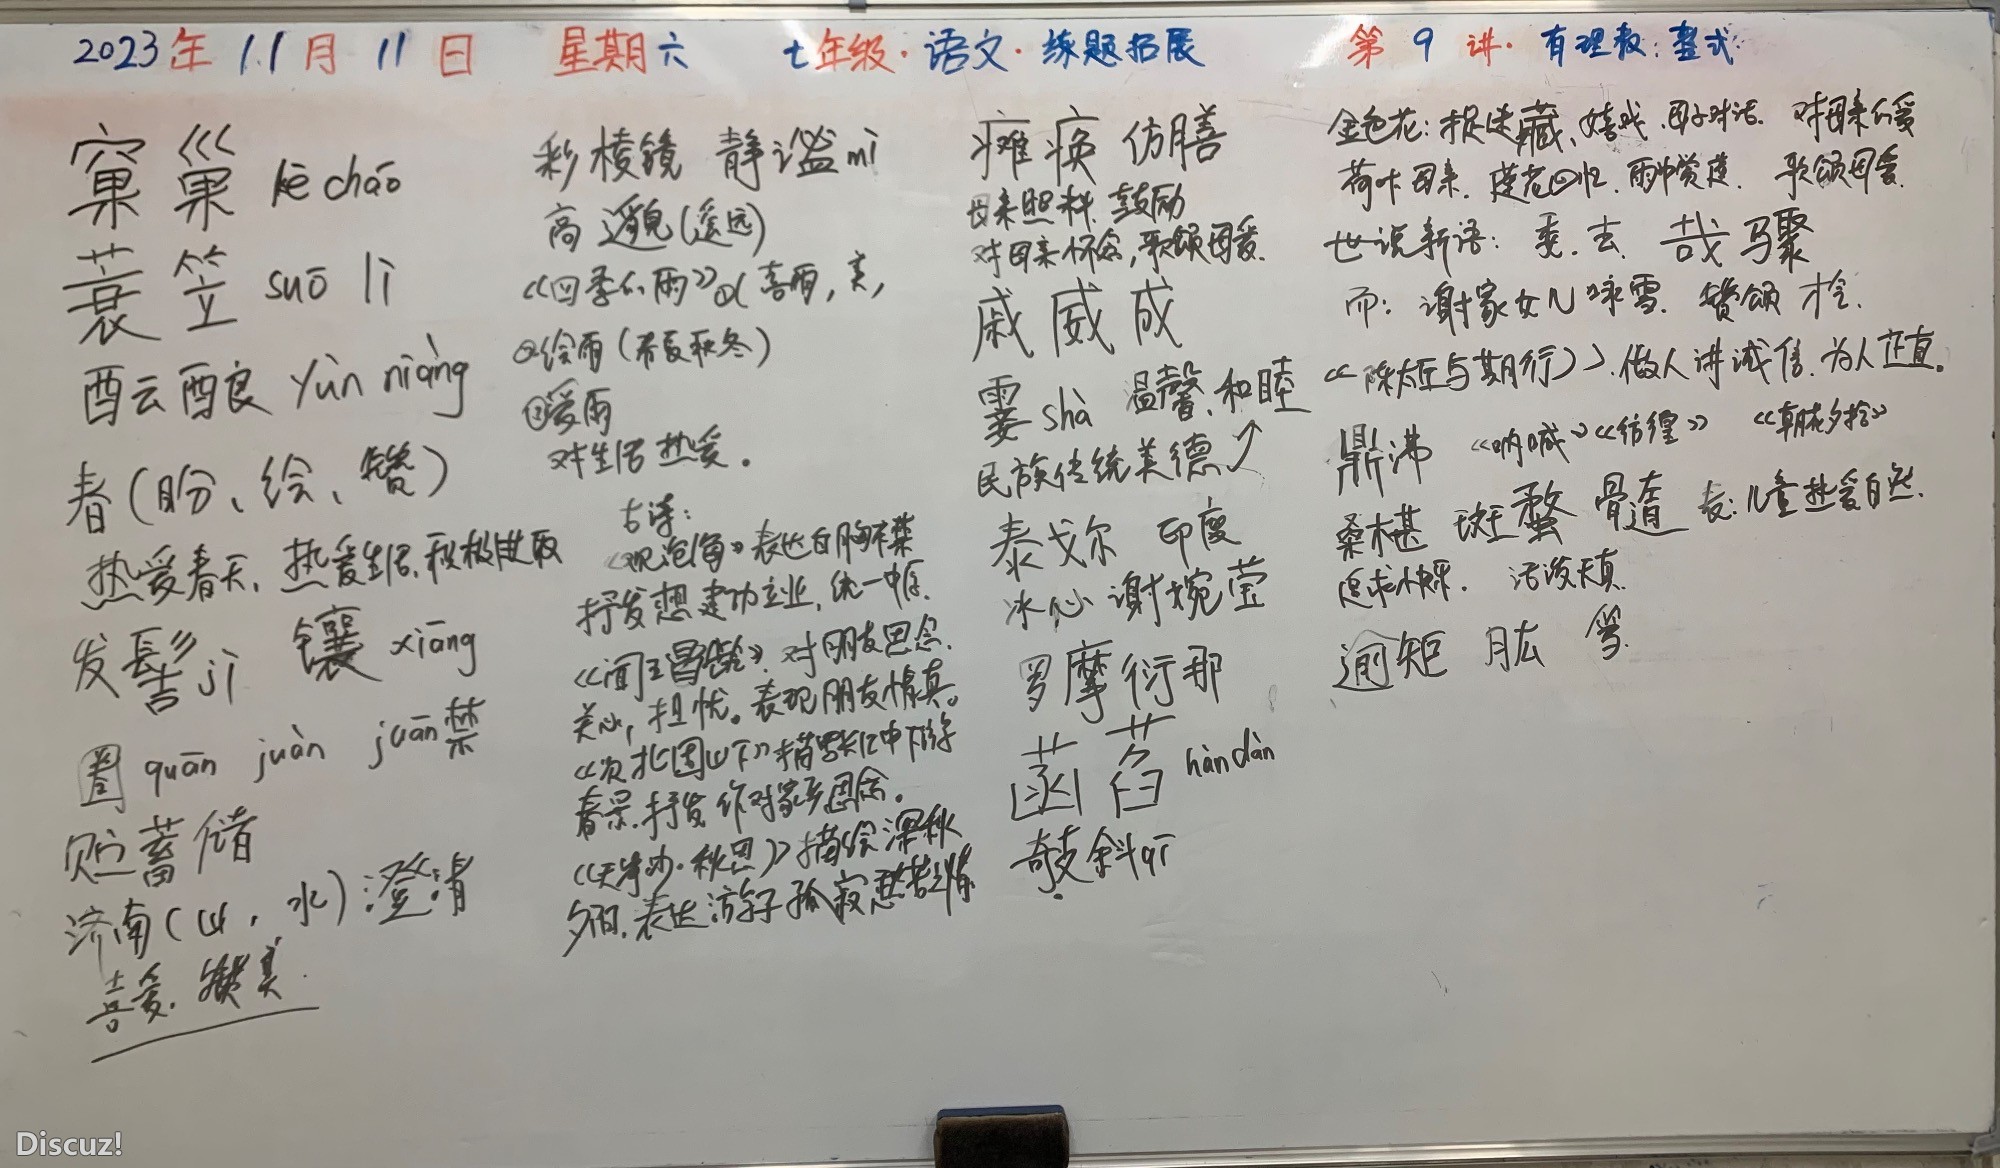 2023年 11月 11日 星期六 七年级·语文·练题拓展 第 9 讲·有理数:整式
窠巢 kē cháo
蓑笠 suō lì
酝酿 yùn niàng
春(盼、绘、赞)
热爱春天、热爱生活、积极进取
发髻 jì 镶 xiāng
圈 quān juàn juān 禁
贮蓄 储
济南(山、水):澄清
喜爱、赞美.
彩棱镜 静谧 mì
高邈(遥远)
《四季的雨》①(喜雨,美,
②绘雨(春夏秋冬)
③爱雨
对生活热爱。
古诗:
《观沧海》表达自胸襟
抒发想建功立业,统一中原.
《闻王昌龄》. 对朋友思念.
关心,担忧。表现朋友情真。
《次北固山下》描写长江中下游
春景.抒发作对家乡思念。
《天净沙·秋思》描绘深秋
夕阳.表达游子孤寂愁苦之情.
瘫痪 仿膳
母亲照料、鼓励
对母亲怀念,歌颂母爱.
戚 威 成
霎 shà 温馨、和睦
民族传统美德↗
泰戈尔 印度
冰心 谢婉莹
罗摩衍那
菡萏 hàn dàn
攲斜 qī
金色花:捉迷藏、嬉戏.母子对话. 对母亲的爱
荷叶母亲. 莲花回忆. 雨中赏莲. 歌颂母爱.
世说新语: 委.去 哉 骤
而: 谢家女儿咏雪. 赞颂 才会.
《陈太丘与期行》.做人讲诚信.为人正直。
鼎沸 《呐喊》《彷徨》 《朝花夕拾》
桑椹 斑蝥 髓 表:儿童热爱自然.
追求快乐. 活泼天真.
逾矩 肱 笃.
Discuz!